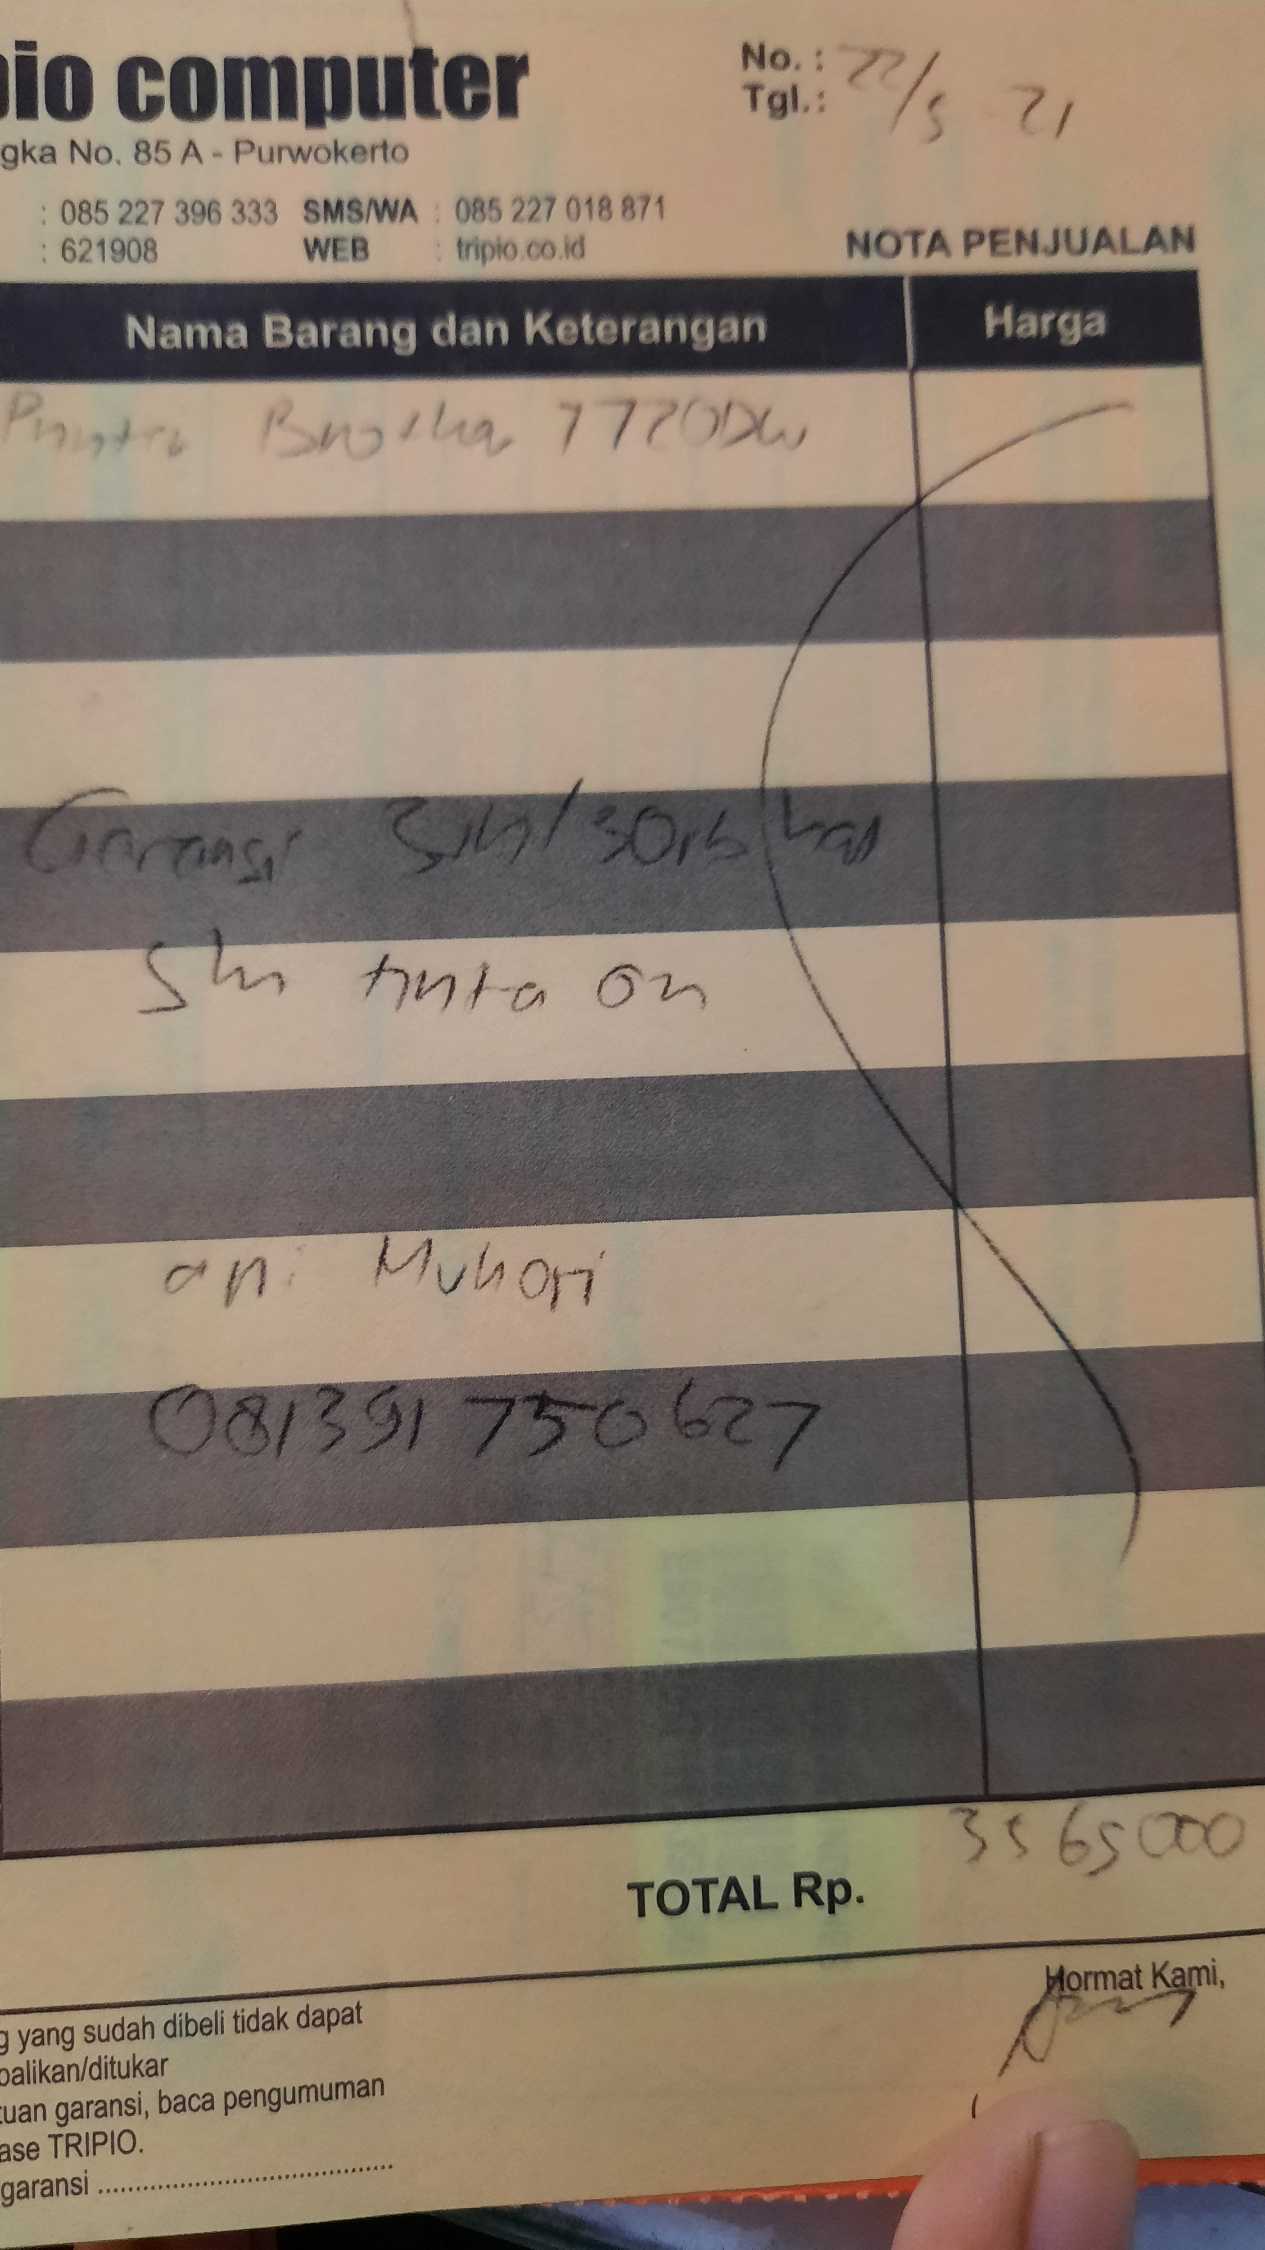 pio computer
No. :
Tgl. : 22/5 21
gka No. 85 A - Purwokerto
: 085 227 396 333 SMS/WA : 085 227 018 871
: 621908 WEB : tripio.co.id
NOTA PENJUALAN
Nama Barang dan Keterangan Harga
Printer Brother T720DW
Garansi 3th/30rb
tinta on
an. Muhori
081391 750627
3565000
TOTAL Rp.
Hormat Kami,
g yang sudah dibeli tidak dapat
balikan/ditukar
tuan garansi, baca pengumuman
ase TRIPIO.
garansi ..........................................